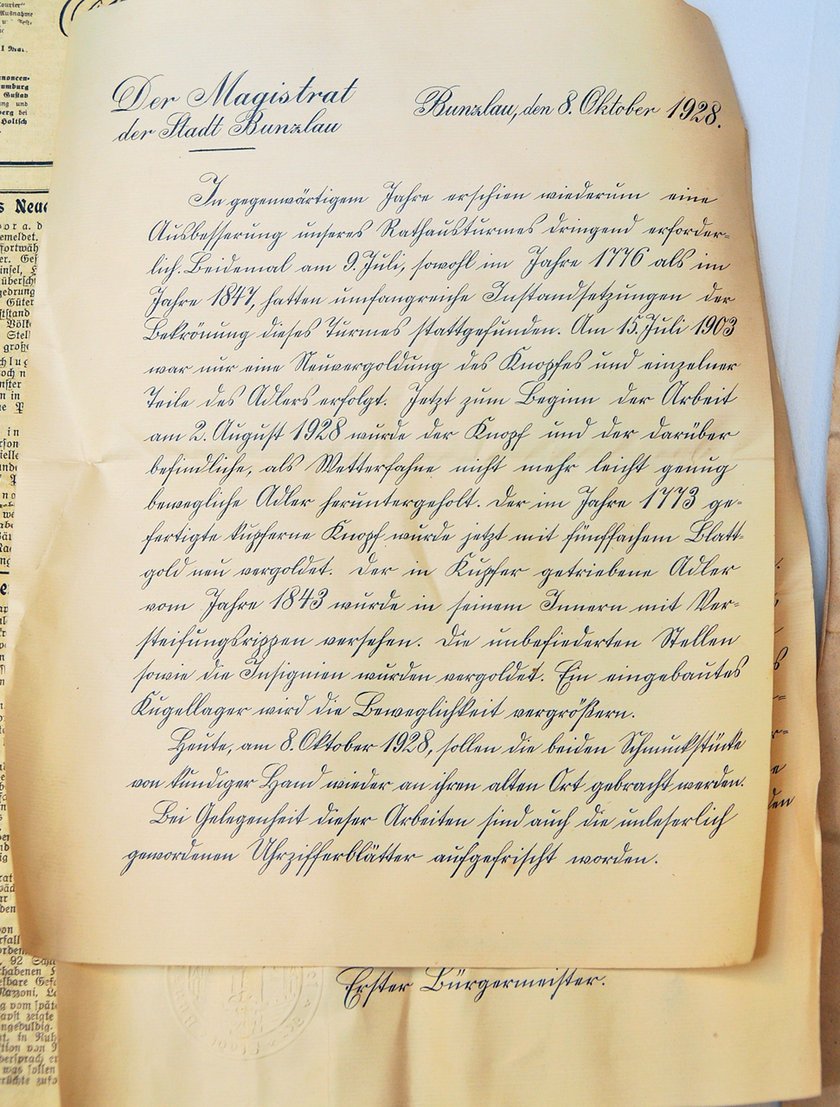 Der Magistrat
der Stadt Bunzlau
Bunzlau, den 8. Oktober 1928.
In gegenwärtigem Jahre erschien wiederum eine
Ausbesserung unseres Rathausturmes dringend erforder-
lich. Beidemal am 9. Juli, sowohl im Jahre 1776 als im
Jahre 1847, hatten umfangreiche Instandsetzungen der
Bekrönung dieses Turmes stattgefunden. Am 15. Juli 1903
war nur eine Neuvergoldung des Knopfes und einzelner
Teile des Adlers erfolgt. Jetzt zum Beginn der Arbeit
am 2. August 1928 wurde der Knopf und der darüber
befindliche, als Wetterfahne nicht mehr leicht genug
bewegliche Adler heruntergeholt. Der im Jahre 1773 ge-
fertigte kupferne Knopf wurde jetzt mit fünffachem Blatt-
gold neu vergoldet. Der in Kupfer getriebene Adler
vom Jahre 1843 wurde in seinem Innern mit Ver-
steifungsrippen versehen. Die unbefiederten Stellen
sowie die Insignien wurden vergoldet. Ein eingebautes
Kugellager wird die Beweglichkeit vergrößern.
Heute, am 8. Oktober 1928, sollen die beiden Schmuckstücke
von kundiger Hand wieder an ihren alten Ort gebracht werden.
Bei Gelegenheit dieser Arbeiten sind auch die unleserlich
gewordenen Uhrzifferblätter aufgefrischt worden.
Erster Bürgermeister.